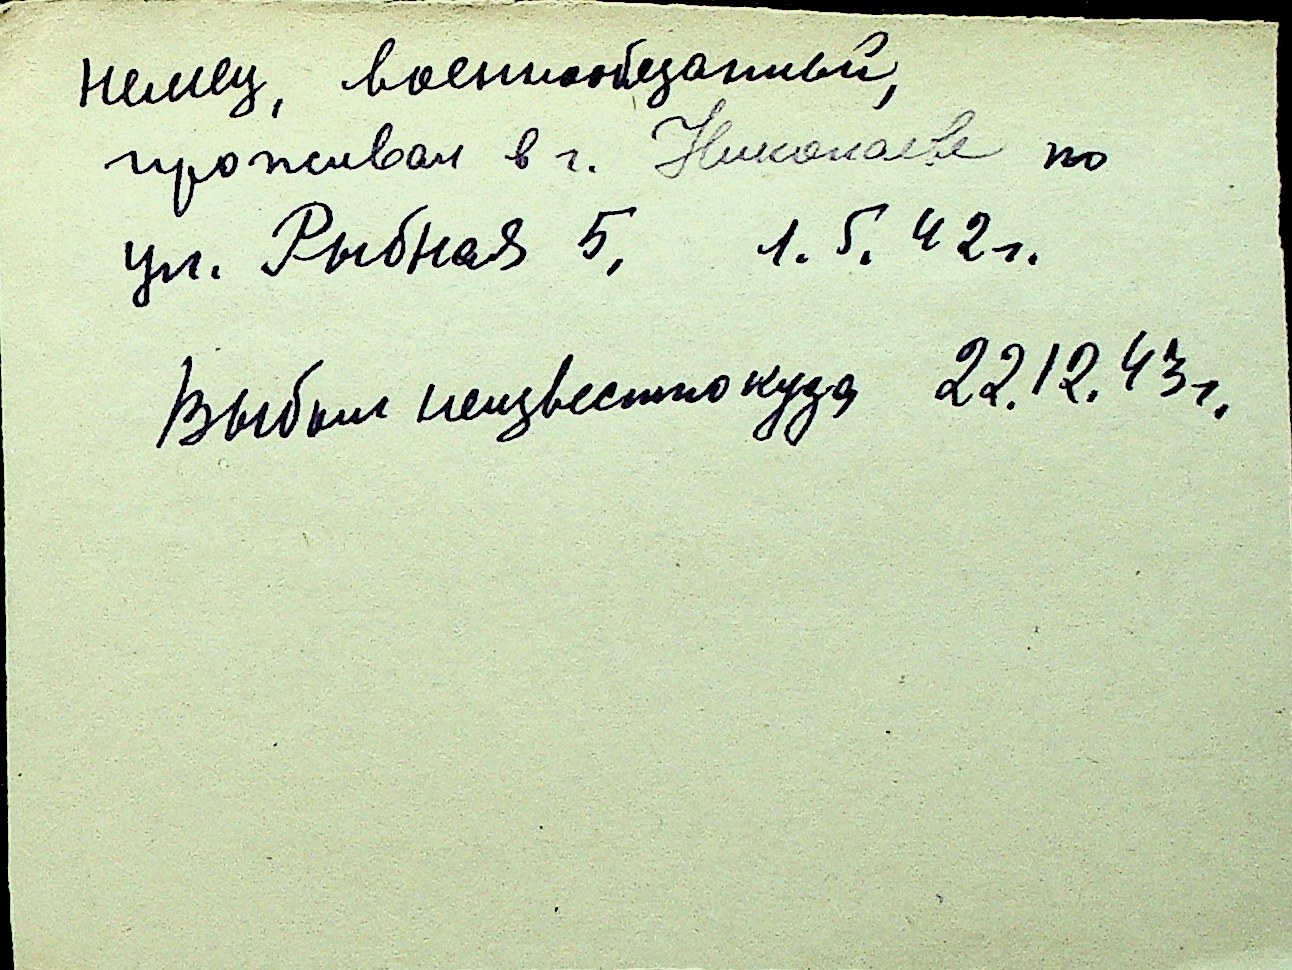 немец, военнообязанный,
проживал в г. Николаеве по
ул. Рыбная 5, 1.5.42г.
Выбыл неизвестно куда 22.12.43г.